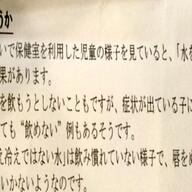 うか
いで保健室を利用した児童の様子を見ていると、「水を
果があります。
を飲もうとしないこともですが、症状が出ている子に
ても“飲めない”例もあるそうです。
え冷えではない水」は飲み慣れていない様子で、唇をぬ
いかないようなのです。